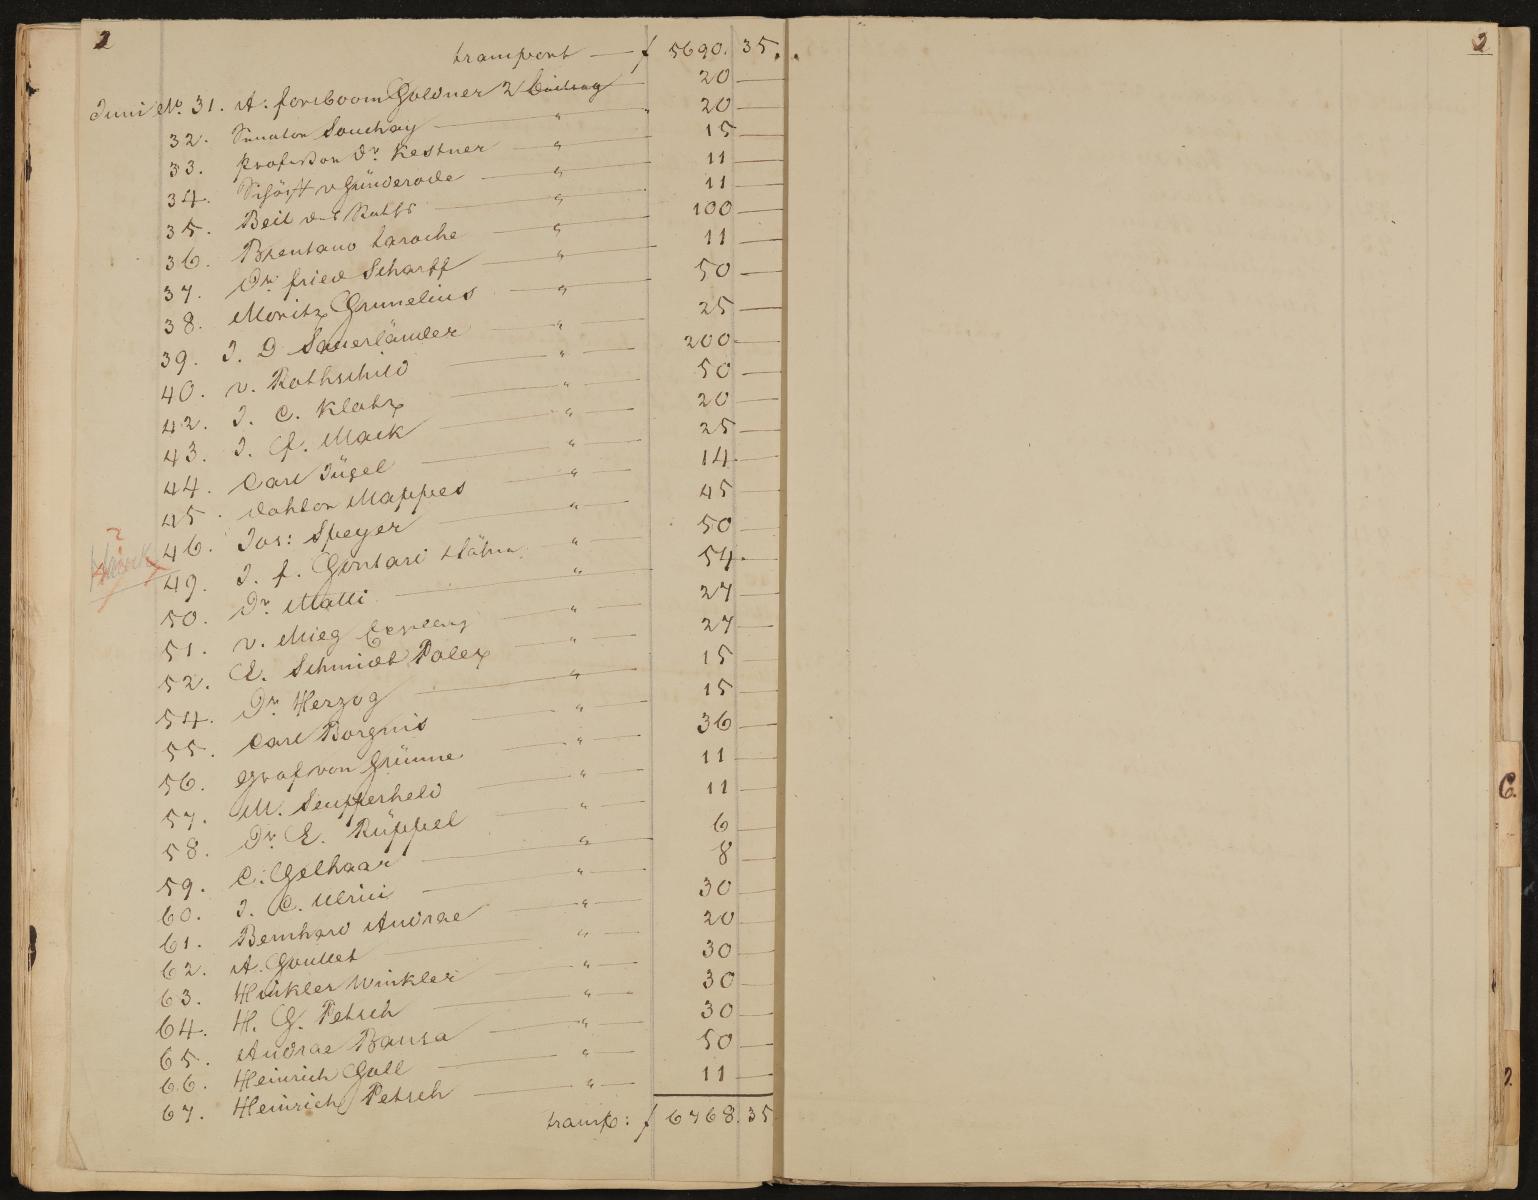 2
transport — f 5690. 35.
Juni No. 31. A: foreboom Goldner 2 Beitrag 20 —
32. Senator Souchay — " 20 —
33. Professor Dr. Kestner — " 15 —
34. Schöff v Günderode — " 11 —
35. Beil des Raths — " 11 —
36. Brentano Laroche — " 100 —
37. Dr. fried Scharff — " 11 —
38. Moritz Grunelius — " 50 —
39. J. D Sauerländer — " 25 —
40. v. Rothschild — " 200 —
42. J. C. Klotz — " 50 —
43. J. f. Mack — " 20 —
44. Carl Jügel — " 25 —
45. doktor Mappes — " 14 —
46. Jos: Speyer — " 45 —
49. J. f. Gontard — " 50 —
50. Dr. Matti — " 54 —
51. v. Mieg — " 27 —
52. E. Schmidt Polex — " 27 —
54. Dr. Herzog — " 15 —
55. Carl Borgnis — " 15 —
56. Graf von Grünne — " 36 —
57. M. Seufferheld — " 11 —
58. Dr. E. Rüppel — " 11 —
59. C. Gelhaar — " 6 —
60. J. C. Ulrici — " 8 —
61. Bernhard Andrae — " 30 —
62. A. Goullet — " 20 —
63. Hinkler Winkler — " 30 —
64. H. G. Petsch — " 30 —
65. Andrae Bansa — " 30 —
66. Heinrich Goll — " 50 —
67. Heinrich Petsch — " 11 —
transp: f 6768. 35
2
C.